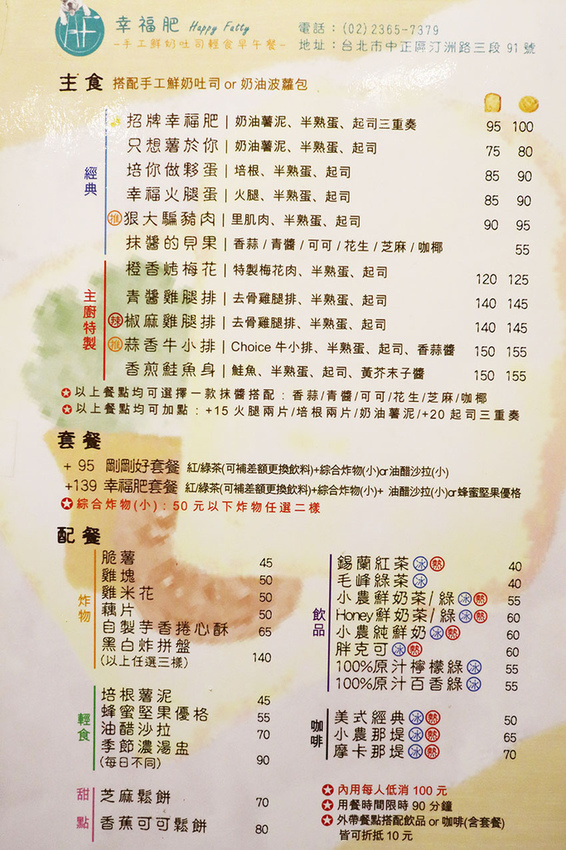 幸福肥 Happy Fatty
電話：(02)2365-7379
-手工鮮奶吐司輕食早午餐-
地址：台北市中正區汀洲路三段 91 號
主食 搭配手工鮮奶吐司 or 奶油波蘿包
經典
招牌幸福肥 | 奶油薯泥、半熟蛋、起司三重奏 95 100
只想薯於你 | 奶油薯泥、半熟蛋、起司 75 80
培你做夥蛋 | 培根、半熟蛋、起司 85 90
幸福火腿蛋 | 火腿、半熟蛋、起司 85 90
推 狠大騙豬肉 | 里肌肉、半熟蛋、起司 90 95
抹醬的貝果 | 香蒜/青醬/可可/花生/芝麻/咖椰 55
主廚特製
橙香烤梅花 | 特製梅花肉、半熟蛋、起司 120 125
青醬雞腿排 | 去骨雞腿排、半熟蛋、起司 140 145
辣 椒麻雞腿排 | 去骨雞腿排、半熟蛋、起司 140 145
推 蒜香牛小排 | Choice 牛小排、半熟蛋、起司、香蒜醬 150 155
香煎鮭魚身 | 鮭魚、半熟蛋、起司、黃芥末子醬 150 155
✪以上餐點均可選擇一款抹醬搭配：香蒜/青醬/可可/花生/芝麻/咖椰
✪以上餐點均可加點：+15 火腿兩片/培根兩片/奶油薯泥/+20 起司三重奏
套餐
+ 95 剛剛好套餐 紅/綠茶(可補差額更換飲料)+綜合炸物(小)or油醋沙拉(小)
+139 幸福肥套餐 紅/綠茶(可補差額更換飲料)+綜合炸物(小)+ 油醋沙拉(小)or蜂蜜堅果優格
✪綜合炸物(小)：50 元以下炸物任選二樣
配餐
炸物
脆薯 45
雞塊 50
雞米花 50
藕片 50
自製芋香捲心酥 65
黑白炸拼盤
(以上任選三樣) 140
輕食
培根薯泥 45
蜂蜜堅果優格 55
油醋沙拉 70
季節濃湯盅
(每日不同) 90
甜點
芝麻鬆餅 70
香蕉可可鬆餅 80
飲品
錫蘭紅茶 冰 熱 40
毛峰綠茶 冰 40
小農鮮奶茶/綠 冰 熱 55
Honey鮮奶茶/綠 冰 熱 60
小農純鮮奶 冰 熱 60
胖克可 冰 熱 60
100%原汁檸檬綠 冰 55
100%原汁百香綠 冰 55
咖啡
美式經典 冰 熱 50
小農那堤 冰 熱 65
摩卡那堤 冰 熱 70
✪內用每人低消 100 元
✪用餐時間限時 90 分鐘
✪外帶餐點搭配飲品 or 咖啡(含套餐)
皆可折抵 10 元